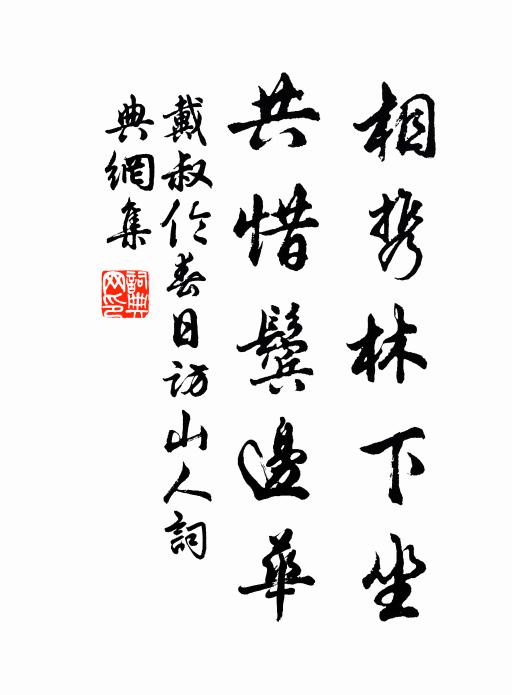 相携林下坐
共惜鬢邊華
戴叔伦春日访山人詞
典網集
詞典网印